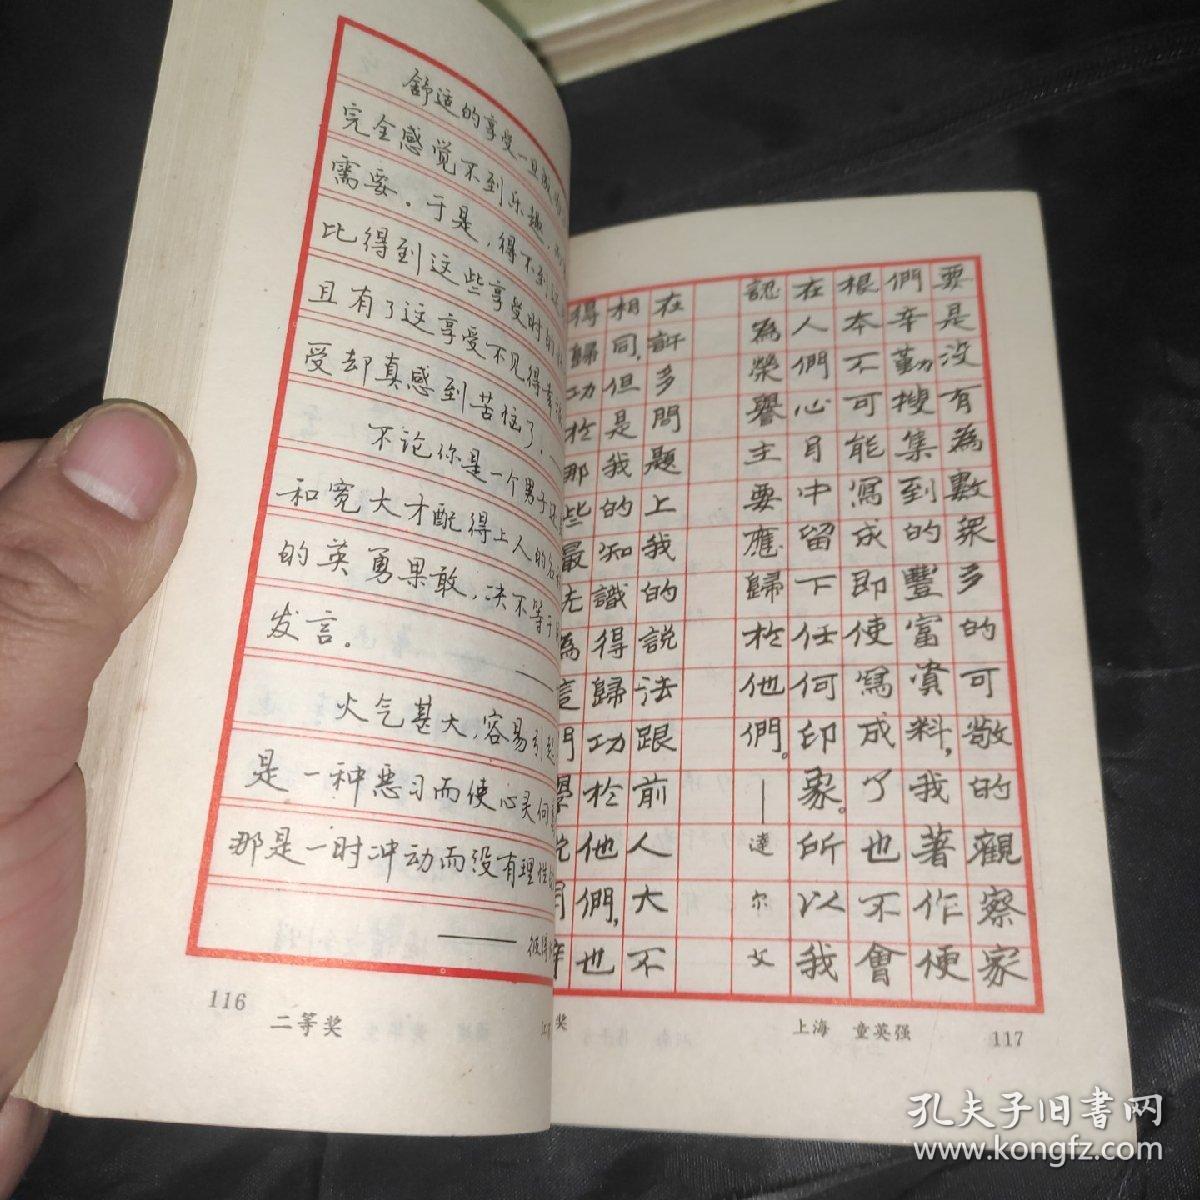 舒适的享受一旦
完全感觉不到乐趣,
需要。于是,得不到
比得到这些享受时的
且有了这享受不见得幸
受却真感到苦恼了。
不论你是一个男子还
和宽大才配得上人的名
的英勇果敢,决不等于
发言。
火气甚大,容易引起
是一种恶习而使心灵向
那是一时冲动而没有理性
116
二等奖
要是没有為數眾多的可敬的觀察家
們辛勤搜集到的豐富資料,我著作便
根本不可能寫成即使寫成了也不會
在人們心目中留下任何印象。所以我
認為榮譽主要應歸於他們。——達尔文
在許多問題上我的說法跟前人大不
相同,但是我的知識得歸功於他們,也
得歸功於那些最先為這門學
奖
上海 童英强
117
孔夫子旧书网
www.kongfz.com